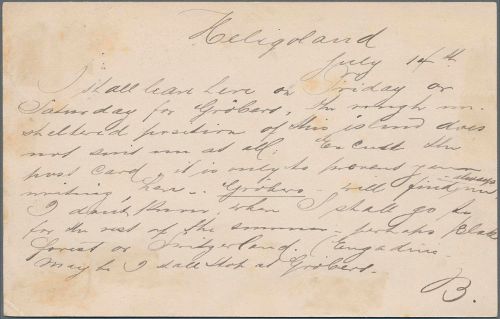 Heligoland
July 14th
I shall leave here on Friday or
Saturday for Gröbers, the rough un-
sheltered position of this island does
not suit me at all: Excuse the
post card, it is only to prevent your
writing here. Gröbers - will always find me,
I don't know where I shall go to
for the rest of the summer - perhaps Black
forest or Switzerland. (Engadine.
May be I shall stop at Gröbers.
B.